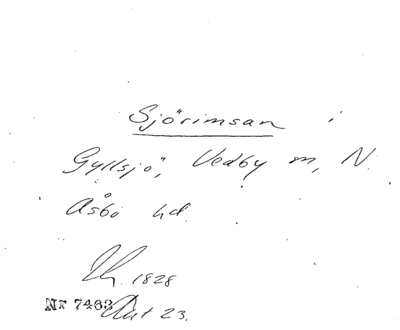 Sjörimsan i
Gyllsjö, Vedby m, N.
Åsbo hd.
1828
Nr 7463
23.